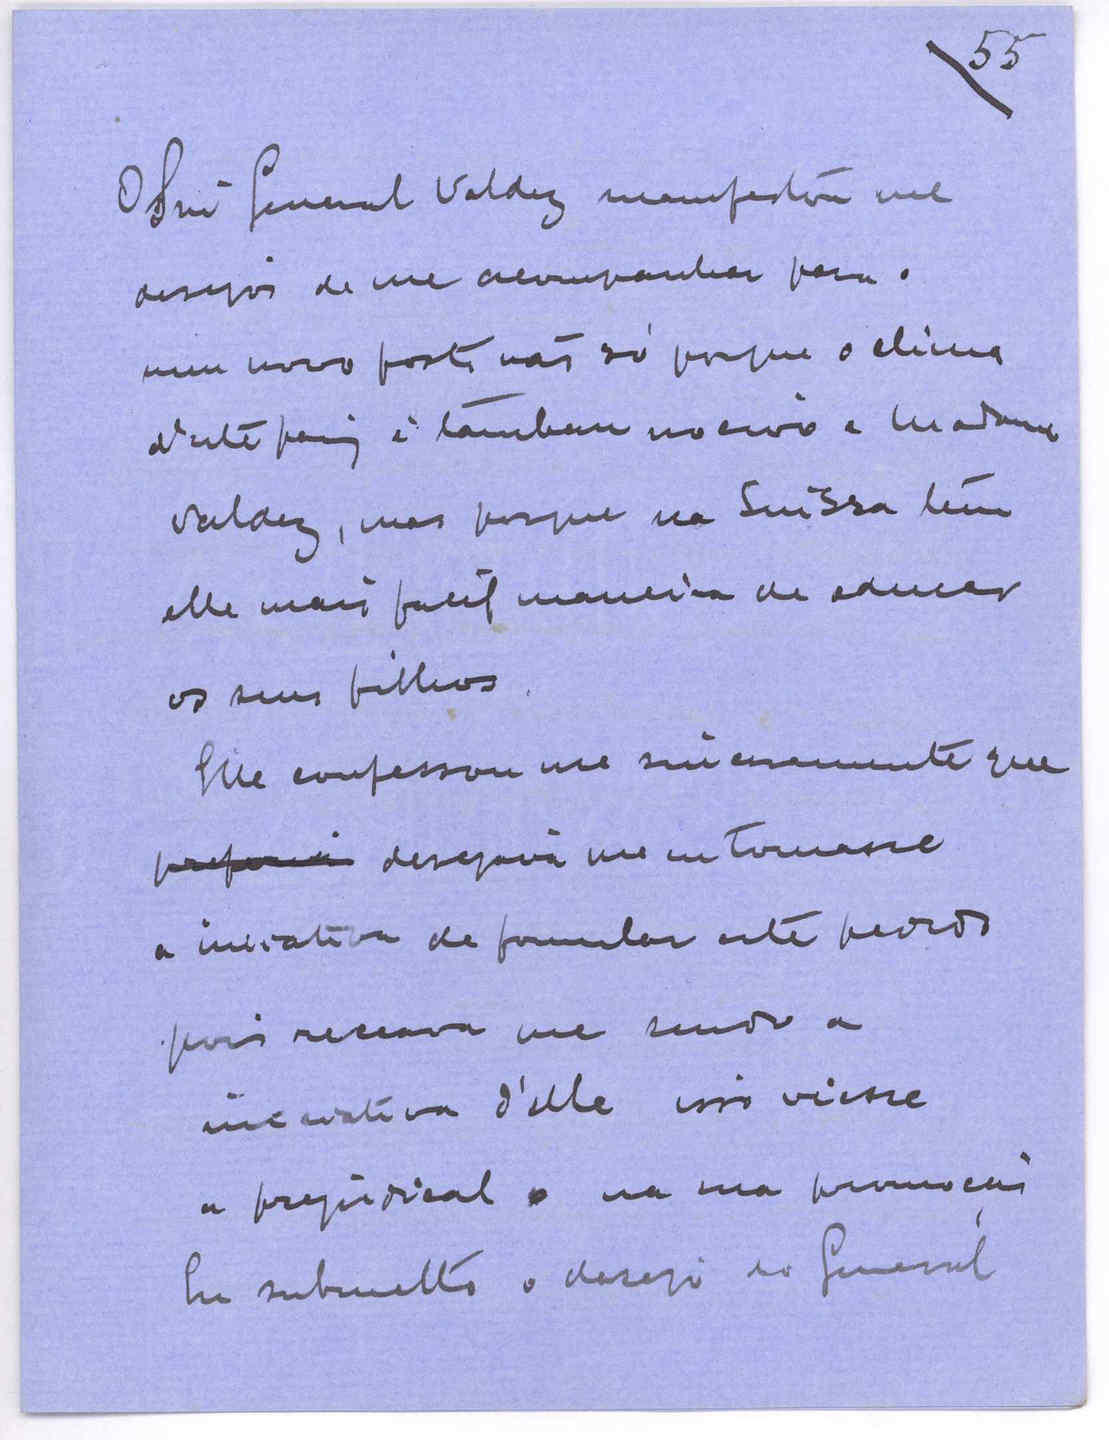 55
O Snr General Valdez manifestou me
desejos de me acompanhar para o
meu novo posto não só porque o clima
d'este paiz é tambem nocivo a Madame
Valdez, mas porque na Suissa tem
elle mais facil maneira de educar
os seus filhos.
Elle confessou me sinceramente que
preferia desejava me eu tomasse
a iniciativa de formular este pedido
pois receava me sendo a
iniciativa d'elle isso viesse
a prejudical o na sua promoção
Eu submetto o desejo do General